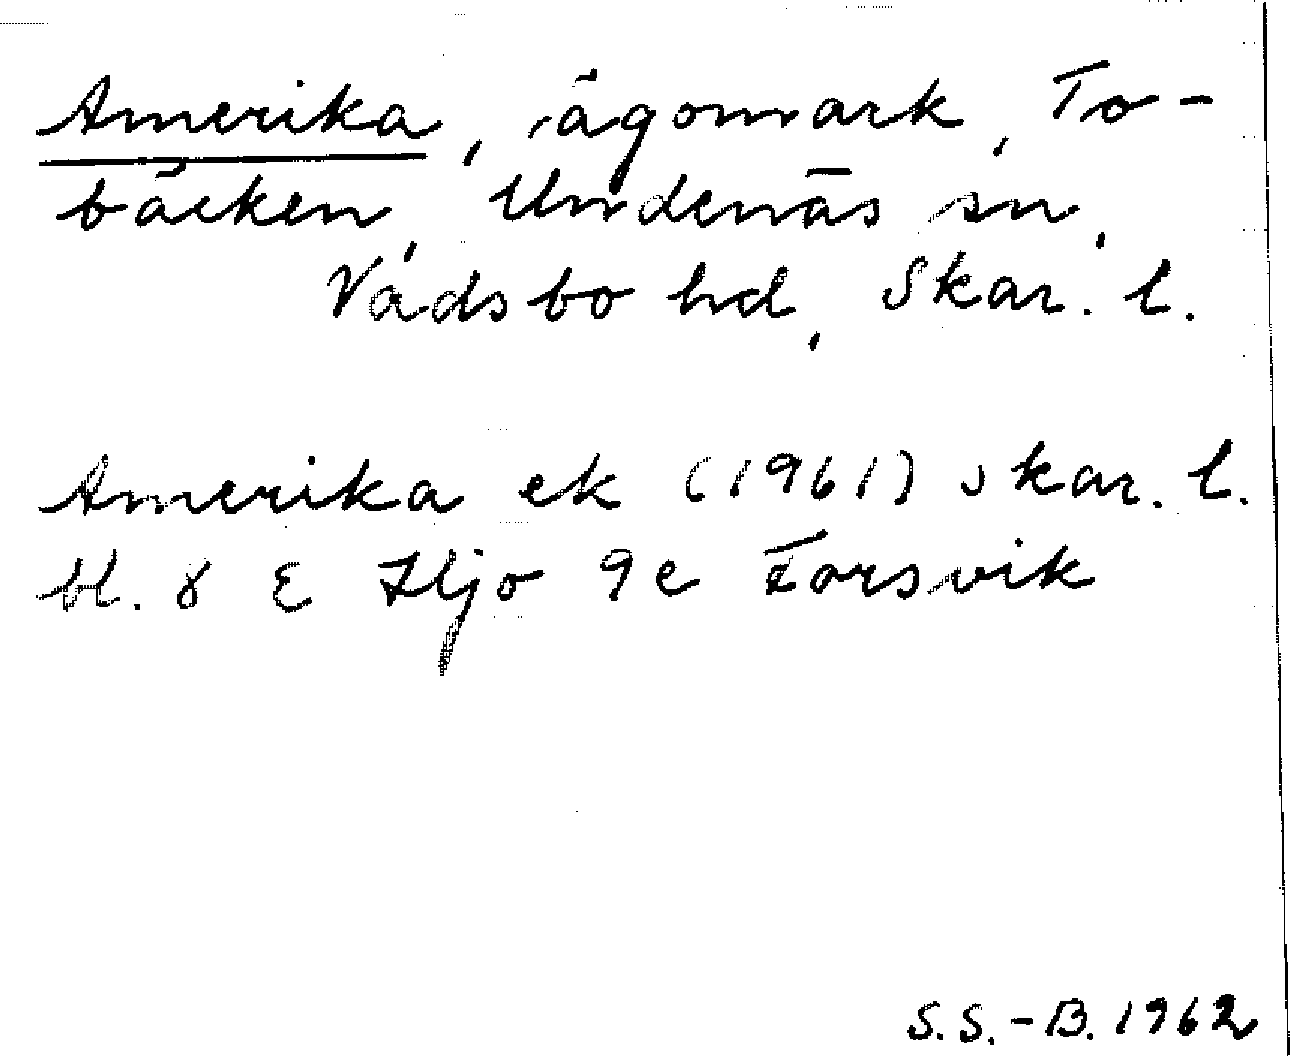 Amerika, ägomark, To-
bäcken, Undenäs sn,
Vadsbo hd, Skar. l.
Amerika ek (1961) Skar. l.
bl. 8 E Hjo 9e Forsvik
S.S.-B. 1962